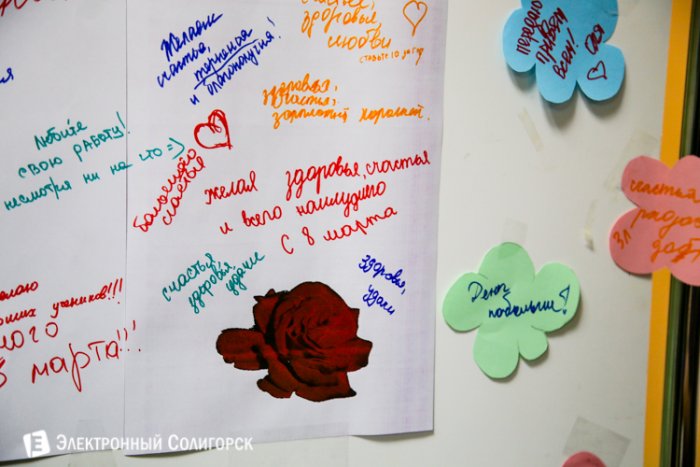 Желаю
счастья,
терпения
и благополучия!
здоровья,
любви
ставьте 10 за год
здоровья,
счастья,
зарплаты хорошей.
Любите
свою работу!
несмотря ни на что =)
большого
счастья
Желаю здоровья, счастья
и всего наилучшего
с 8 марта
счастья
здоровья,
удачи
здоровья,
удачи
учеников!!!
8 марта!!!
Передаю
привет
всем!
Денег
побольше!
счастья
радос
ЭЛЕКТРОННЫЙ СОЛИГОРСК